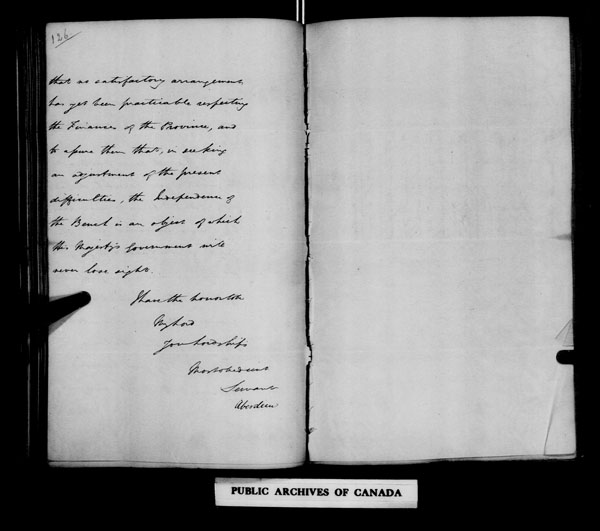 126
that no satisfactory arrangement
has yet been practicable respecting
the Finances of the Province, and
to assure them that, in seeking
an adjustment of the present
difficulties, the Independence of
the Bench is an object of which
His Majesty's Government will
never lose sight.
I have the honor to be
My Lord
Your Lordship's
Most obedient
Servant
Aberdeen
PUBLIC ARCHIVES OF CANADA